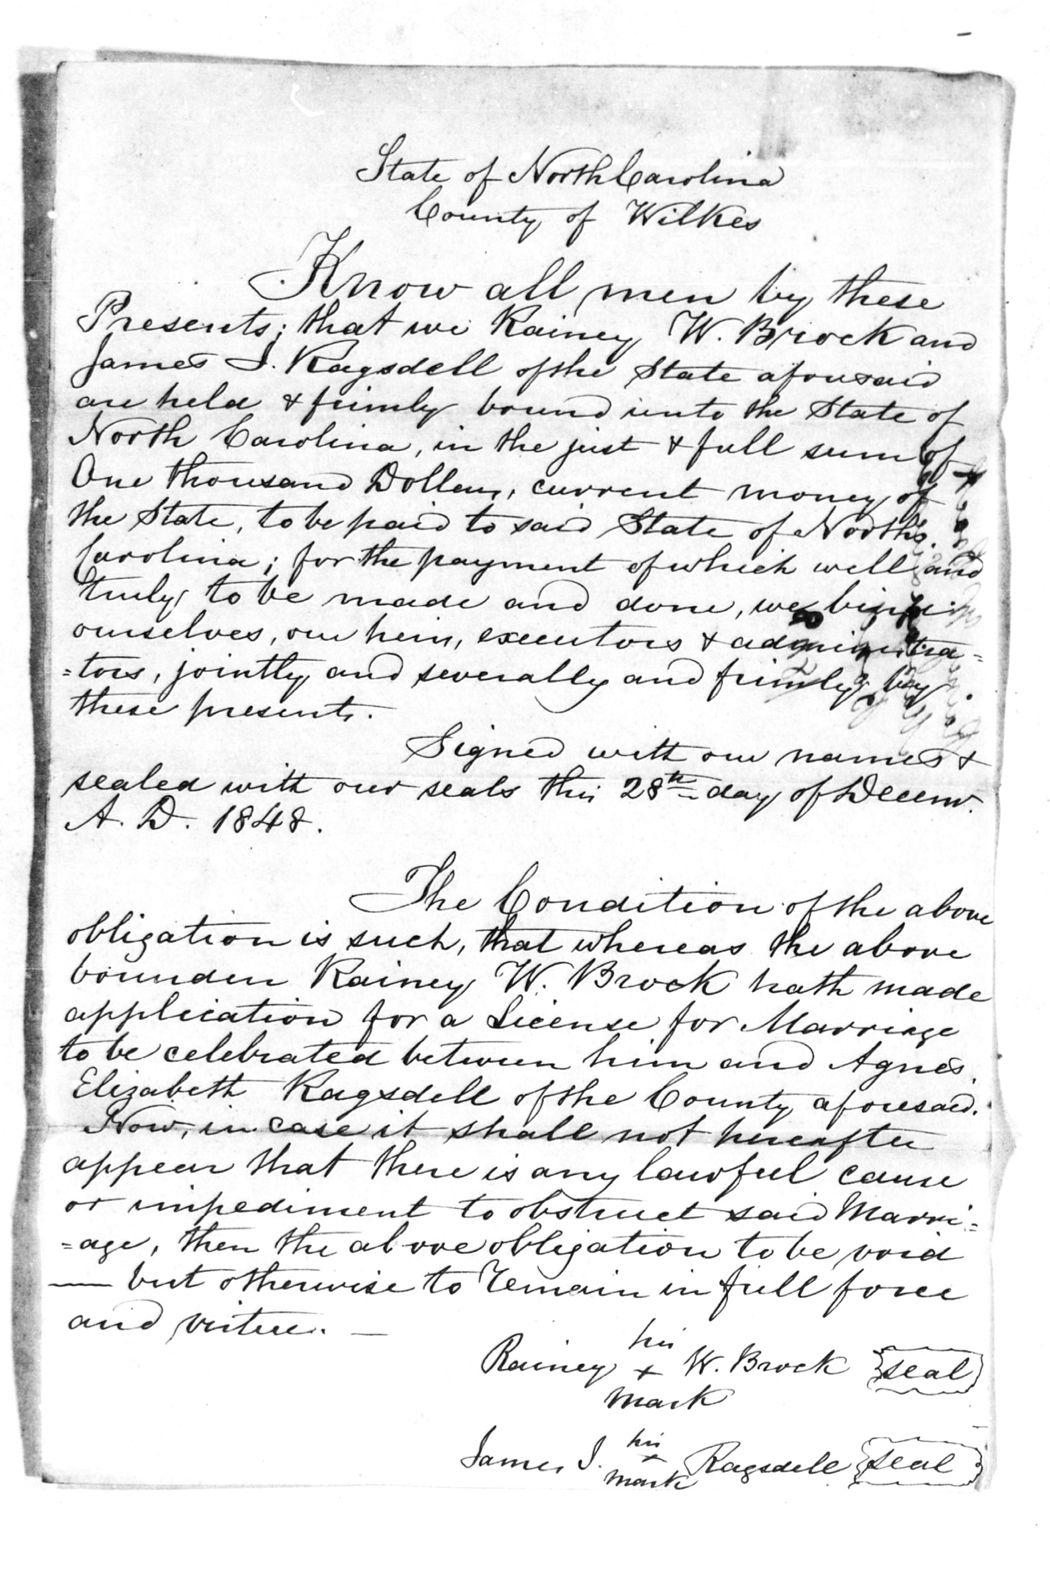 State of North Carolina
County of Wilkes
Know all men by these
Presents; that we Rainey W. Brock and
James I. Ragsdell of the State aforesaid
are held & firmly bound unto the State of
North Carolina, in the just & full sum of
One thousand Dollars, current money of
the State, to be paid to said State of North
Carolina; for the payment of which well and
truly to be made and done, we bind
ourselves, our heirs, executors & administra=
=tors, jointly and severally and firmly by
these presents.
Signed with our names &
sealed with our seals this 28th day of Decemr.
A. D. 1848.
The Condition of the above
obligation is such, that whereas the above
bounden Rainey W. Brock hath made
application for a License for Marriage
to be celebrated between him and Agnes
Elizabeth Ragsdell of the County aforesaid.
Now, in case it shall not hereafter
appear that there is any lawful cause
or impediment to obstruct said Marri=
=age, then the above obligation to be void
— but otherwise to remain in full force
and virtue. —
his
Rainey + W. Brock seal
mark
his
James I. + Ragsdell seal
mark